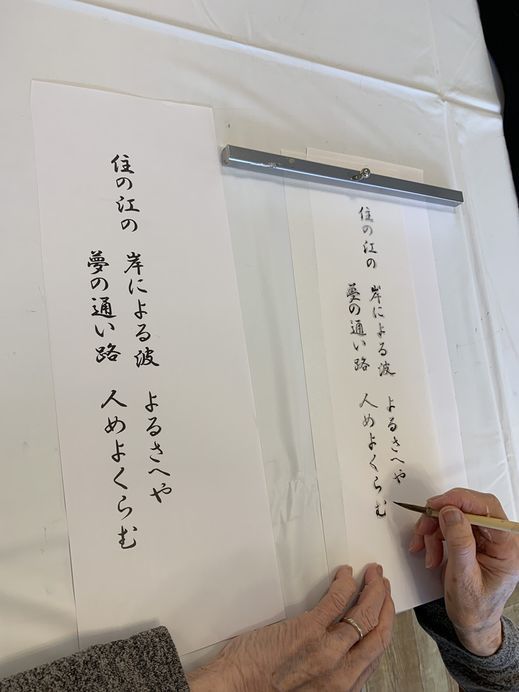 住の江の
岸による波
よるさへや
夢の通い路
人めよくらむ
住の江の
岸による波
よるさへや
夢の通い路
人めよくらむ